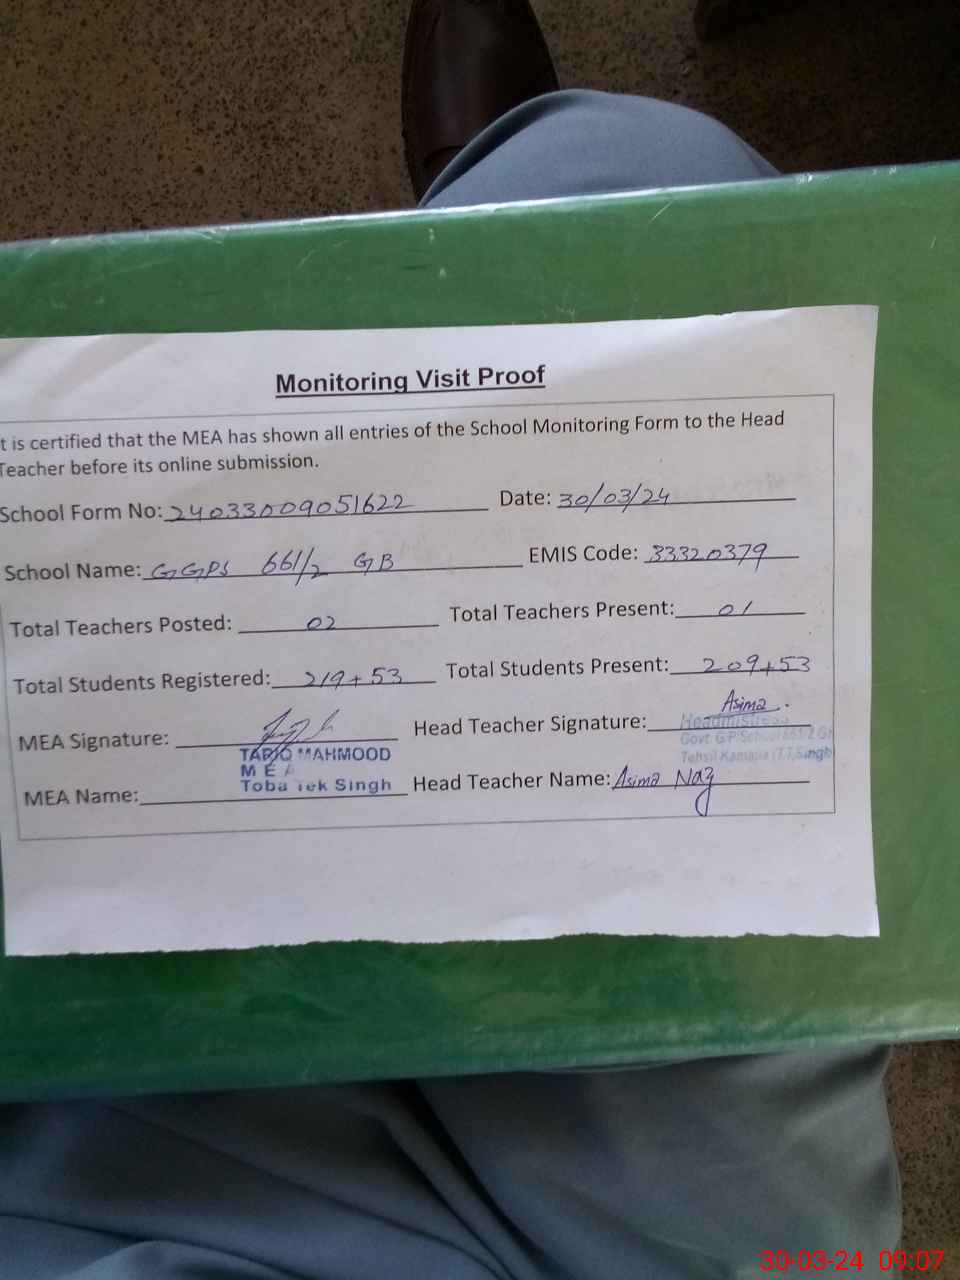 Monitoring Visit Proof
t is certified that the MEA has shown all entries of the School Monitoring Form to the Head
Teacher before its online submission.
School Form No: 24033009051622 Date: 30/03/24
School Name: GGPS 661/2 GB EMIS Code: 33320379
Total Teachers Posted: 02 Total Teachers Present: 01
Total Students Registered: 219+53 Total Students Present: 209+53
MEA Signature: Head Teacher Signature: Asima.
Headmistress
Govt. G.P/School 661/2 GB
Tehsil Kamalia (T.T.Singh
TARIQ MAHMOOD
MEA
Toba Tek Singh
MEA Name: Head Teacher Name: Asima Naz
30-03-24 09:07